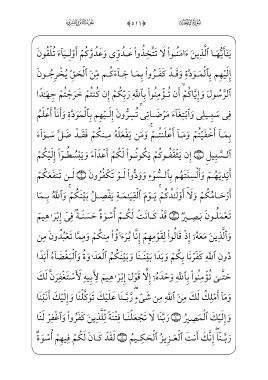 يَٰٓأَيُّهَا ٱلَّذِينَ ءَامَنُوا۟ لَا تَتَّخِذُوا۟ عَدُوِّى وَعَدُوَّكُمْ أَوْلِيَآءَ تُلْقُونَ
إِلَيْهِم بِٱلْمَوَدَّةِ وَقَدْ كَفَرُوا۟ بِمَا جَآءَكُم مِّنَ ٱلْحَقِّ يُخْرِجُونَ
ٱلرَّسُولَ وَإِيَّاكُمْ أَن تُؤْمِنُوا۟ بِٱللَّهِ رَبِّكُمْ إِن كُنتُمْ خَرَجْتُمْ جِهَٰدًا
فِى سَبِيلِى وَٱبْتِغَآءَ مَرْضَاتِى تُسِرُّونَ إِلَيْهِم بِٱلْمَوَدَّةِ وَأَنَا۠ أَعْلَمُ
بِمَآ أَخْفَيْتُمْ وَمَآ أَعْلَنتُمْ وَمَن يَفْعَلْهُ مِنكُمْ فَقَدْ ضَلَّ سَوَآءَ
ٱلسَّبِيلِ إِن يَثْقَفُوكُمْ يَكُونُوا۟ لَكُمْ أَعْدَآءً وَيَبْسُطُوٓا۟ إِلَيْكُمْ
أَيْدِيَهُمْ وَأَلْسِنَتَهُم بِٱلسُّوٓءِ وَوَدُّوا۟ لَوْ تَكْفُرُونَ لَن تَنفَعَكُمْ
أَرْحَامُكُمْ وَلَآ أَوْلَٰدُكُمْ يَوْمَ ٱلْقِيَٰمَةِ يَفْصِلُ بَيْنَكُمْ وَٱللَّهُ بِمَا
تَعْمَلُونَ بَصِيرٌ قَدْ كَانَتْ لَكُمْ أُسْوَةٌ حَسَنَةٌ فِىٓ إِبْرَٰهِيمَ
وَٱلَّذِينَ مَعَهُۥٓ إِذْ قَالُوا۟ لِقَوْمِهِمْ إِنَّا بُرَءَٰٓؤُا۟ مِنكُمْ وَمِمَّا تَعْبُدُونَ مِن
دُونِ ٱللَّهِ كَفَرْنَا بِكُمْ وَبَدَا بَيْنَنَا وَبَيْنَكُمُ ٱلْعَدَٰوَةُ وَٱلْبَغْضَآءُ أَبَدًا
حَتَّىٰ تُؤْمِنُوا۟ بِٱللَّهِ وَحْدَهُۥٓ إِلَّا قَوْلَ إِبْرَٰهِيمَ لِأَبِيهِ لَأَسْتَغْفِرَنَّ لَكَ
وَمَآ أَمْلِكُ لَكَ مِنَ ٱللَّهِ مِن شَىْءٍ رَّبَّنَا عَلَيْكَ تَوَكَّلْنَا وَإِلَيْكَ أَنَبْنَا
وَإِلَيْكَ ٱلْمَصِيرُ رَبَّنَا لَا تَجْعَلْنَا فِتْنَةً لِّلَّذِينَ كَفَرُوا۟ وَٱغْفِرْ لَنَا
رَبَّنَآ إِنَّكَ أَنتَ ٱلْعَزِيزُ ٱلْحَكِيمُ لَقَدْ كَانَ لَكُمْ فِيهِمْ أُسْوَةٌ